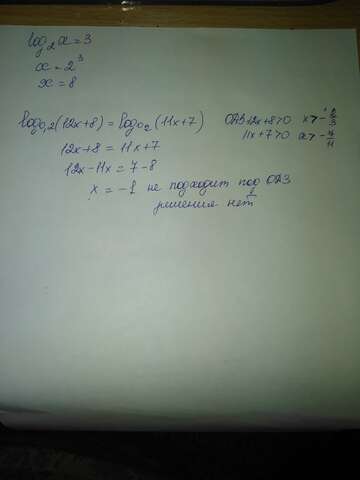 log₂x = 3
x = 2³
x = 8
log₀,₂(12x+8) = log₀,₂(11x+7) ОДЗ 12x+8>0 x>-2/3
11x+7>0 x>-7/11
12x+8 = 11x+7
12x-11x = 7-8
x = -1 не подходит под ОДЗ
решения нет